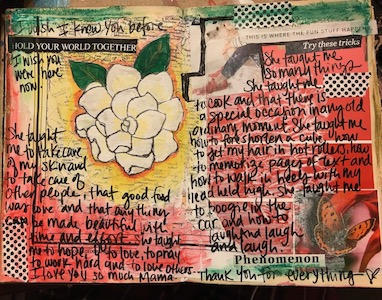 I wish I knew you before
HOLD YOUR WORLD TOGETHER
I wish you
were here
now.
She taught
me to take care
of my skin and
to take care of
other people, that good food
was love and that anything can
be made beautiful with
time and effort. She taught
me to hope, to love, to pray
to work hard and to love others.
I love you so much Mama
THIS IS WHERE THE FUN STUFF HAPPENS
Try these tricks
She taught me
so many things
She taught me
to cook and that there is
a special occasion in any old
ordinary moment. She taught me
how to freshen a cut, how
to get my hair in hot rollers, how
to memorize pages of text and
how to walk in heels with my
head held high. She taught me
to boogie in the
car and how to
laugh and laugh
and laugh.
Phenomenon
Thank you for everything